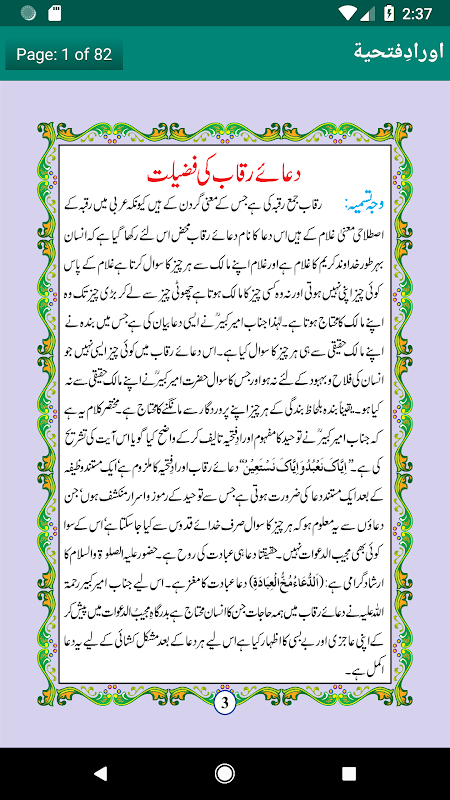 2:37
Page: 1 of 82
اورادِفتحية
دعائے رقاب کی فضیلت
وجہ تسمیہ: رقاب جمع رقبہ کی ہے جس کے معنی گردن کے ہیں کیونکہ عربی میں رقبہ کے
اصطلاحی معنی غلام کے ہیں اس دعا کا نام دعائے رقاب محض اس لئے رکھا گیا ہے کہ انسان
بہرطور خداوند کریم کا غلام ہے اور غلام اپنے مالک سے ہر چیز کا سوال کرتا ہے غلام کے پاس
کوئی چیز اپنی نہیں ہوتی اور نہ وہ کسی چیز کا مالک ہوتا ہے چھوٹی چیز سے لے کر بڑی چیز تک وہ
اپنے مالک کا محتاج ہوتا ہے۔ لہٰذا جناب امیر کبیرؒ نے ایسی دعا بیان کی ہے جس میں بندہ نے
اپنے مالک حقیقی سے ہی ہر چیز کا سوال کیا ہے۔ اس دعائے رقاب میں کوئی چیز ایسی نہیں جو
انسان کی فلاح و بہبود کے لئے نہ ہو اور جس کا سوال حضرت امیر کبیرؒ نے اپنے مالک حقیقی سے نہ
کیا ہو۔ یقیناً بندہ بلحاظ بندگی کے ہر چیز اپنے پروردگار سے مانگنے کا محتاج ہے۔ مختصر کلام یہ ہے
کہ جناب امیر کبیرؒ نے توحید کا مفہوم اوراد فتحیہ تالیف کر کے واضح کیا گویا اس آیت کی تشریح
کی ہے۔ ”اِیَّاکَ نَعْبُدُ وَاِیَّاکَ نَسْتَعِیْنُ“ دعائے رقاب اور اوراد فتحیہ کا ملزوم ہے ایک مستند وظیفہ
کے بعد ایک مستند دعا کی ضرورت ہوتی ہے جس سے توحید کے رموز و اسرار منکشف ہوں؛ جن
دعاؤں سے یہ معلوم ہو کہ ہر چیز کا سوال صرف خدائے قدوس سے کیا جا سکتا ہے اُس کے سوا
کوئی بھی مجیب الدعوات نہیں۔ حقیقتاً دعا ہی عبادت کی روح ہے۔ حضور علیہ الصلوۃ والسلام کا
ارشاد گرامی ہے: (اَلدُّعَاءُ مُخُّ الْعِبَادَۃِ) دعا عبادت کا مغز ہے۔ اس لیے جناب امیر کبیر رحمۃ
اللہ علیہ نے دعائے رقاب میں ہمہ حاجات جن کا انسان محتاج ہے بدرگاہ مجیب الدعوات میں پیش کر
کے اپنی عاجزی اور بے بسی کا اظہار کیا ہے اس لیے ہر دعا کے بعد مشکل کشائی کے لیے یہ دعا
اکمل ہے۔
3